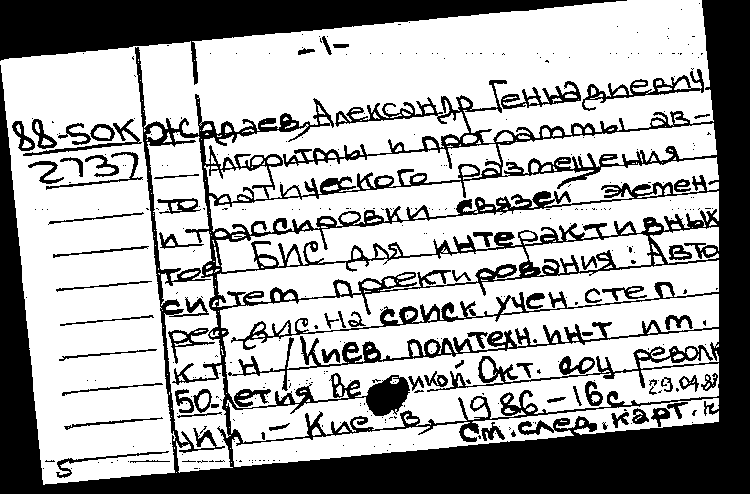 -1-
88-50К Ожадаев, Александр Геннадиевич
2737 Алгоритмы и программы ав-
томатического размещения
и трассировки связей элемен-
тов БИС для интерактивных
систем проектирования: Авто
реф. дис. на соиск. учен. степ.
к.т.н. / Киев. политехн. ин-т им.
50-летия Ве икой Окт. соц револю
ции. - Киев, 1986. - 16с. 29.04.88
См. след. карт.
5